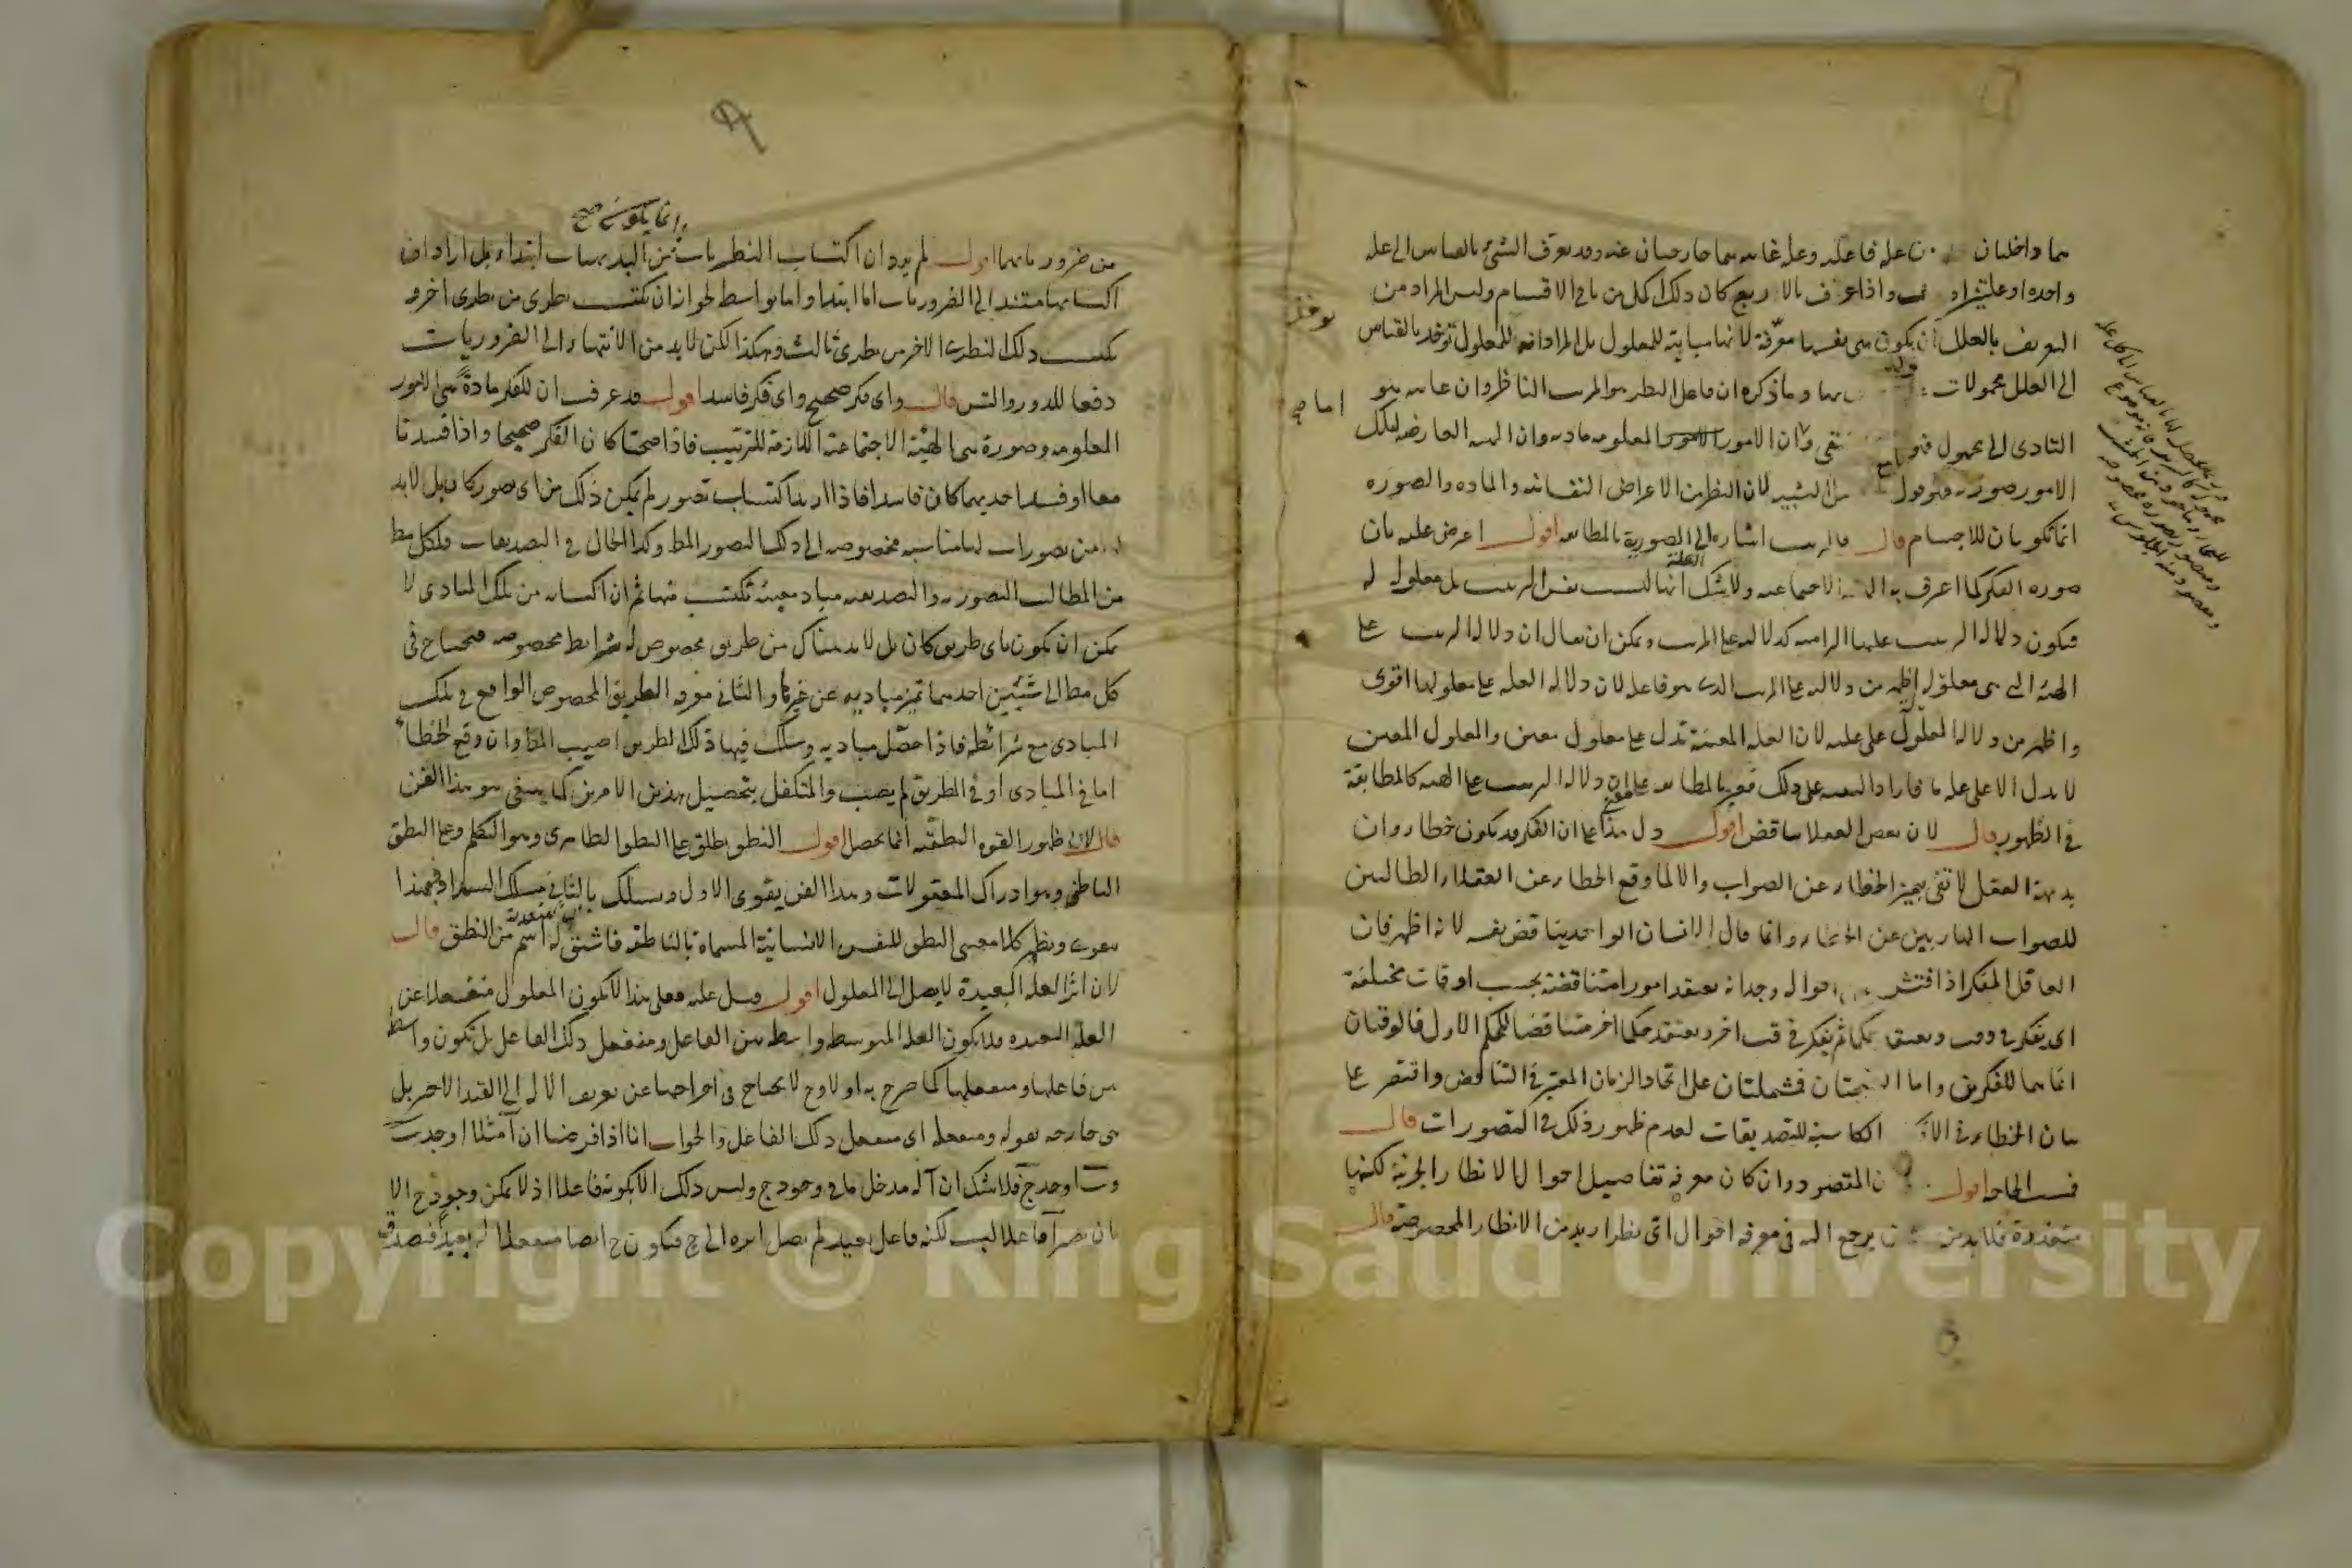 هما داخلتان علة فاعلية وعلة غائية هما خارجتان عنه وقد يعرف الشئ بالقياس الى علة
واحدة او علتين او واذا عرف بالاربع كان ذلك اكمل من باقي الاقسام وليس المراد من
التعريف بالعلل ان يكون هي نفسها معرفة لانها مباينة للمعلول بل المراد انه للمعلول توخذ بالقياس
الى العلل محمولات بها وما ذكره ان فاعل النظر هو المرتب الناظر وان غايته هو
التادى الى مجهول فهو وان الامور المعلومة مادته وان الهيئة العارضة لتلك
الامور صورته فهو قول التشبيه لان النظر من الاعراض النفسانية والمادة والصورة
انما تكونان للاجسام قال فالترتيب اشارة الى العلة الصورية بالمطابقة اقول اعترض عليه بان
صورة الفكر كما اعترف به الهيئة الاجتماعية ولا شك انها ليست نفس الترتيب بل معلولة له
فيكون دلالة الترتيب عليها التزامية كدلالته على المرتب ويمكن ان يقال ان دلالة الترتيب على
الهيئة التي هي معلولة له اظهر من دلالته على المرتب الذي هو فاعله لان دلالة العلة على معلولها اقوى
واظهر من دلالة المعلول على علته لان العلة المعينة تدل على معلول معين والمعلول المعين
لا يدل الا على علة ما فاراد التنبيه على ذلك فعبر بالمطابقة على ان دلالة الترتيب على الهيئة كالمطابقة
في الظهور قال لان بعض العقلا يناقض اقول دل هذا على ان الفكر قد يكون خطاء وان
بديهة العقل لا تفى بتمييز الخطاء عن الصواب والا لما وقع الخطاء عن العقلاء الطالبين
للصواب الهاربين عن الخطاء وانما قال الانسان الواحد يناقض نفسه لانه اظهر فان
العاقل المفكر اذا فتش احواله وجد انه يعتقد امورا متناقضة بحسب اوقات مختلفة
اى يفكر في وقت ويعتقد حكما ثم يفكر في وقت اخر ويعتقد حكما اخر متناقضا للحكم الاول فالوقتان
انما هما للفكرين واما النتيجتان فمشتملتان على اتحاد الزمان المعتبر في التناقض واقتصر على
بيان الخطاء في الافكار الكاسبة للتصديقات لعدم ظهور ذلك في التصورات قال
فمست الحاجة اقول المقصود وان كان معرفة تفاصيل احوال الانظار الجزئية لكنها
متعذرة فلا بد من قانون يرجع اليه في معرفة احوال اى نظر اريد من الانظار المخصوصة قال
وانما يكون صح
من ضرورياتهما اقول لم يرد ان اكتساب النظريات من البديهيات ابتداء بل اراد ان
اكتسابها مستند الى الضروريات اما ابتداء واما بواسط لجواز ان يكتسب نظرى من نظرى اخر و
يكتسب ذلك النظرى الاخر من نظرى ثالث وهكذا لكن لا بد من الانتهاء الى الضروريات
دفعا للدور والتس قال واى فكر صحيح واى فكر فاسد اقول قد عرفت ان للفكر مادة هي الامور
المعلومة وصورة هي الهيئة الاجتماعية اللازمة للترتيب فاذا صحتا كان الفكر صحيحا واذا فسدتا
معا او فسد احديهما كان فاسدا فاذا اريد اكتساب تصور لم يكن ذلك من اى تصور كان بل لابد
له من تصورات لها مناسبة مخصوصة الى ذلك التصور المط وكذا الحال في التصديقات فلكل مط
من المطالب التصورية والتصديقية مباد معينة تكتسب منها ثم ان اكتسابه من تلك المبادى لا
يمكن ان يكون باى طريق كان بل لا بد هناك من طريق مخصوص له شرايط مخصوصة فيحتاج في
كل مط الى شيئين احدهما تمييز مباديه عن غيرها والثاني معرفة الطريق المخصوص الواقع في تلك
المبادى مع شرائطه فاذا حصّل مباديه وسلك فيها ذلك الطريق اصيب المط وان وقع الخطاء
اما في المبادى او في الطريق لم يصب والمتكفل بتحصيل هذين الامرين كما ينبغى هو هذا الفن
قال لان ظهور القوة النطقية انما يحصل اقول النطق يطلق على النطق الظاهرى وهو التكلم وعلى النطق
الباطنى وهو ادراك المعقولات وهذا الفن يقوى الاول ويسلك بالثاني مسلك السداد فبهذا الفن
يتقوى ويظهر كلا معنيى النطق للنفس الانسانية المسماة بالناطقة فاشتق له اسم من النطق قال
لان اثر العلة البعيدة لا يصل الى المعلول اقول قيل عليه فعلى هذا لا يكون المعلول منفعلا عن
العلة البعيدة فلا يكون العلة المتوسطة واسطة بين الفاعل ومنفعل ذلك الفاعل بل تكون واسطة
بين فاعلها ومنفعلها كما صرح به اولا وح لا يحتاج في اخراجها عن تعريف الالة الى القيد الاخير بل
هي خارجة بقوله ومنفعله اى منفعل ذلك الفاعل والجواب انا اذا فرضنا ان آ مثلا اوجدت ب
وب اوجد ج فلا شك ان آ له مدخل ما في وجود ج وليس ذلك الا بكونه فاعلا اذ لا يمكن وجود ج الا
بان يصير آ فاعلا لب لكنه فاعل بعيد لم يصل اثره الى ج فيكون ج ايضا منفعلا له بعيدا فصدق